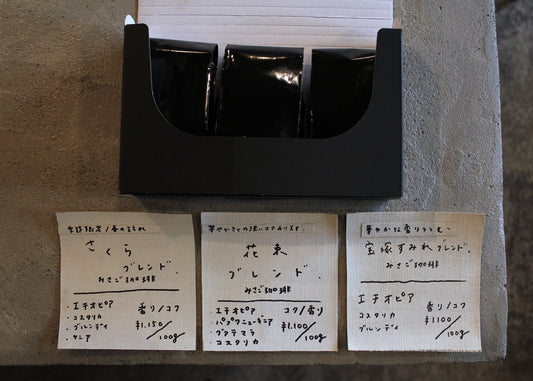 季節限定/春の訪れ
さくら
ブレンド.
みさご珈琲
・エチオピア
・コスタリカ
・ブルンディ
・ケニア
香り/コク
¥1,150/100g
華やかさと深いコクあります。
花束
ブレンド.
みさご珈琲
・エチオピア
・パプアニューギニア
・グアテマラ
・コスタリカ
コク/香り
¥1,100/100g
華やかな香りつつむ、
宝塚すみれブレンド.
みさご珈琲
エチオピア
コスタリカ
ブルンディ
香り/コク
¥1100/100g